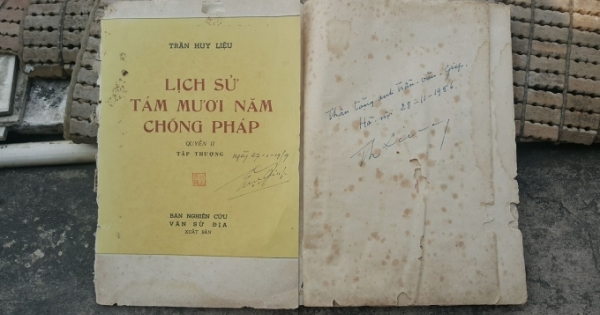 TRẦN HUY LIỆU
LỊCH SỬ
TÁM MƯƠI NĂM
CHỐNG PHÁP
QUYỂN II
TẬP THƯỢNG
BAN NGHIÊN CỨU
VĂN SỬ ĐỊA
XUẤT BẢN
Thân tặng anh Trần Văn Giáp.
Hà-nội 28-11-1956.